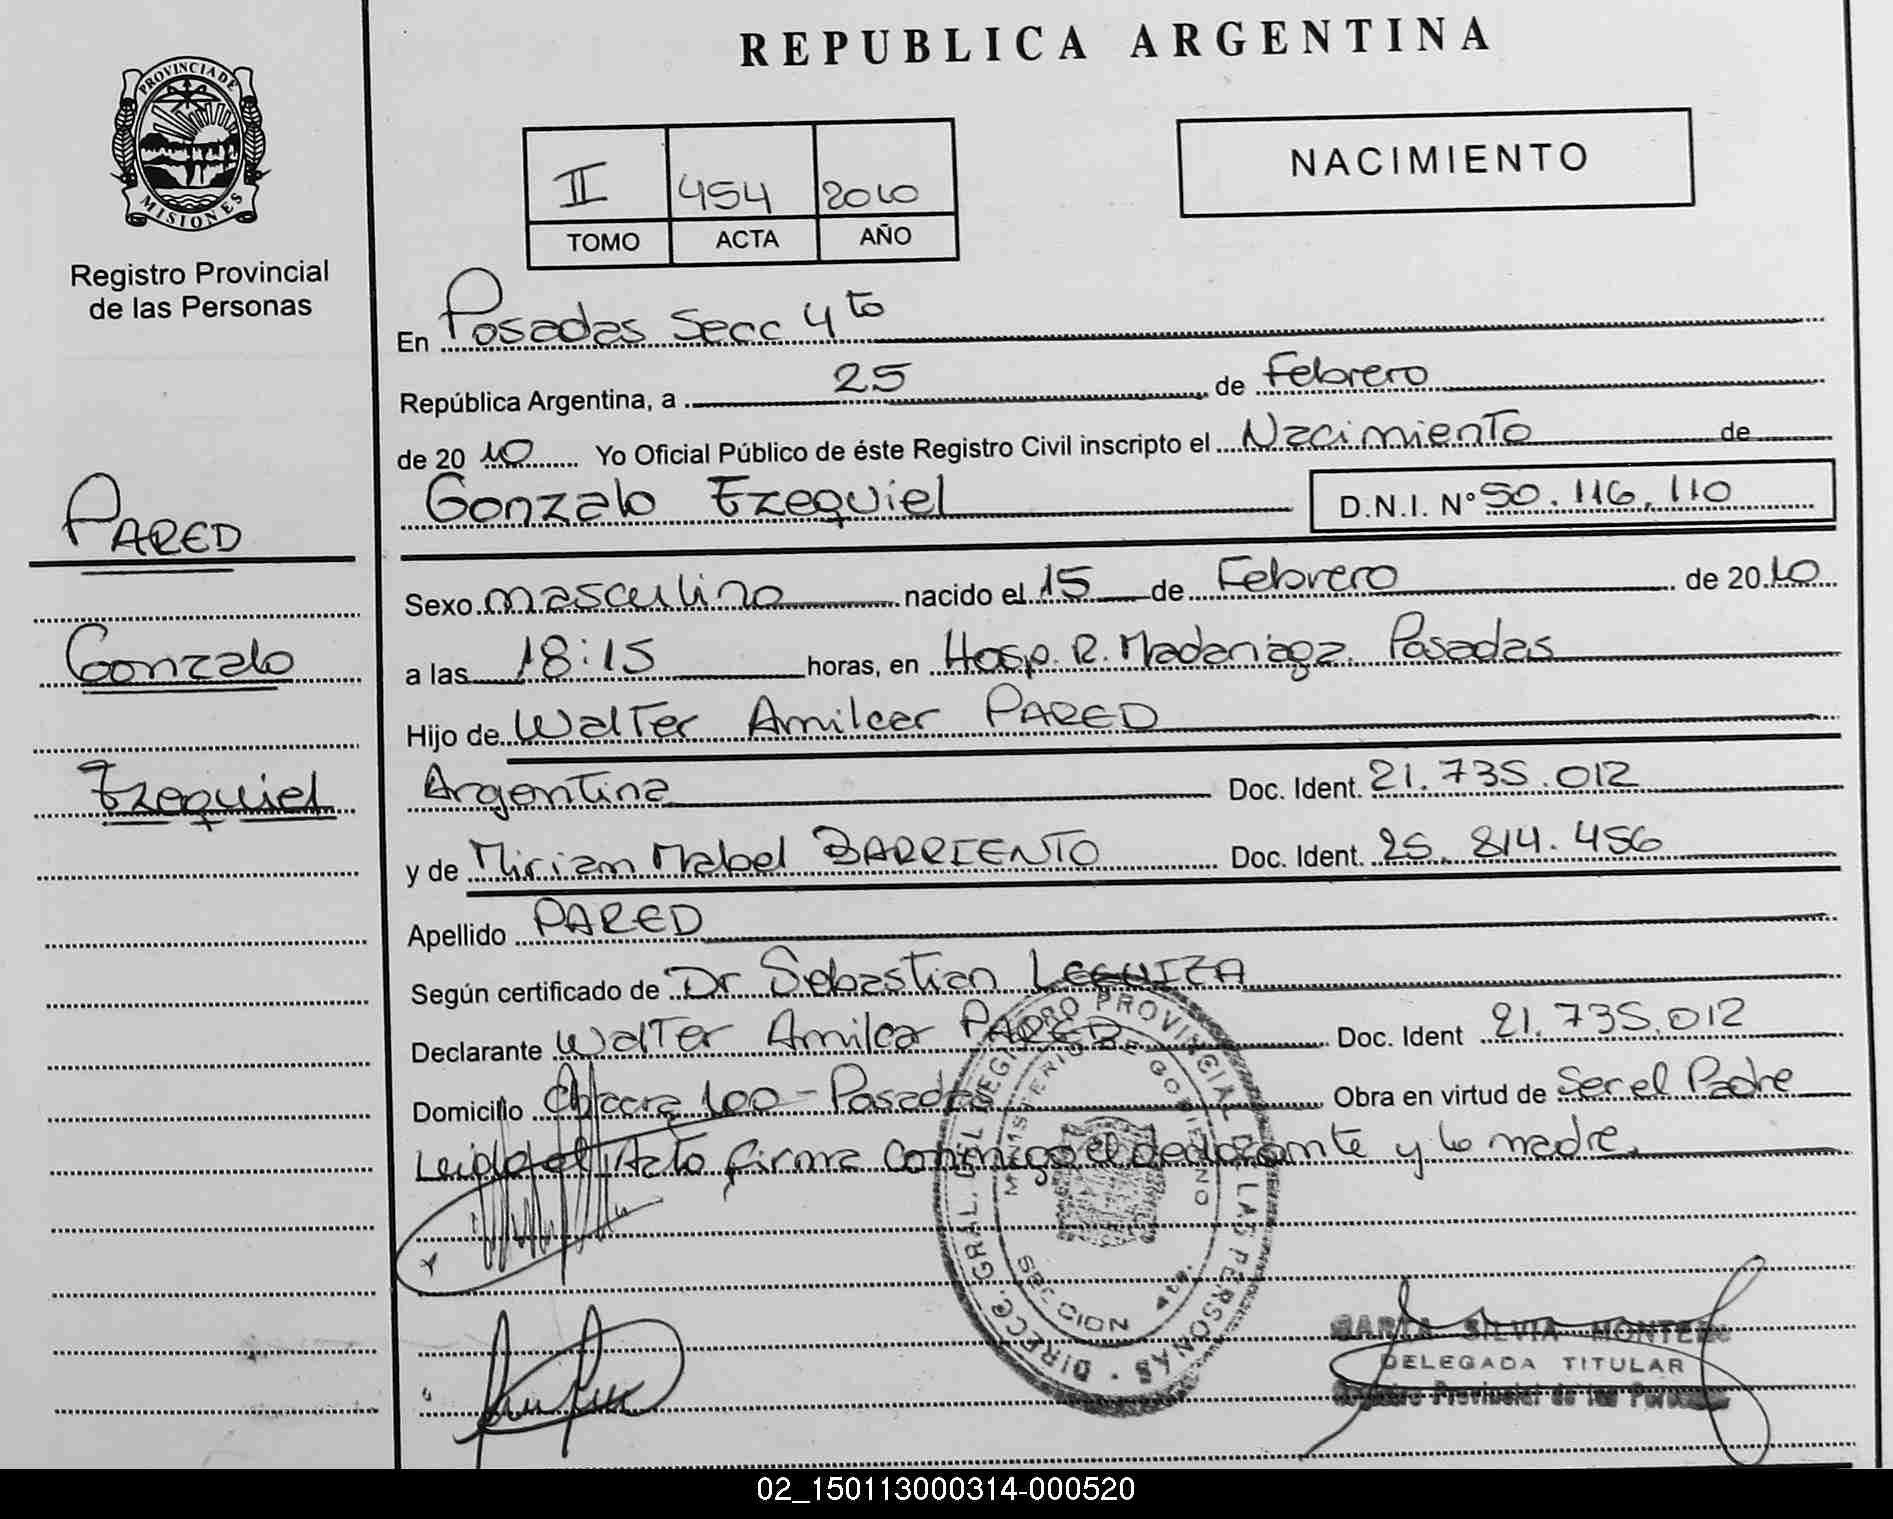 REPUBLICA ARGENTINA
PROVINCIA DE
MISIONES
Registro Provincial
de las Personas
NACIMIENTO
II 454 2010
TOMO ACTA AÑO
En Posadas Secc 4to
República Argentina, a 25 de Febrero
de 2010 Yo Oficial Público de éste Registro Civil inscripto el Nacimiento de
Gonzalo Ezequiel D.N.I. N° 50.116.110
PARED
Gonzalo
Ezequiel
Sexo masculino nacido el 15 de Febrero de 2010
a las 18:15 horas, en Hosp. R. Madariaga. Posadas
Hijo de Walter Amilcar PARED
Argentina Doc. Ident. 21.735.012
y de Miriam Mabel BARRIENTO Doc. Ident. 25.814.456
Apellido PARED
Según certificado de Dr Sebastian LEGUIZA
Declarante Walter Amilcar PARED Doc. Ident 21.735.012
Domicilio Chacra 100 - Posadas Obra en virtud de Ser el Padre
Leida el Acta firma conmigo el declarante y la madre.
DIRECC. GRAL. DEL REGISTRO PROVINCIAL DE LAS PERSONAS
MINISTERIO DE GOBIERNO
SECCION 4ta.
MARTA SILVIA
DELEGADA TITULAR
Registro Provincial de las Personas
02_150113000314-000520